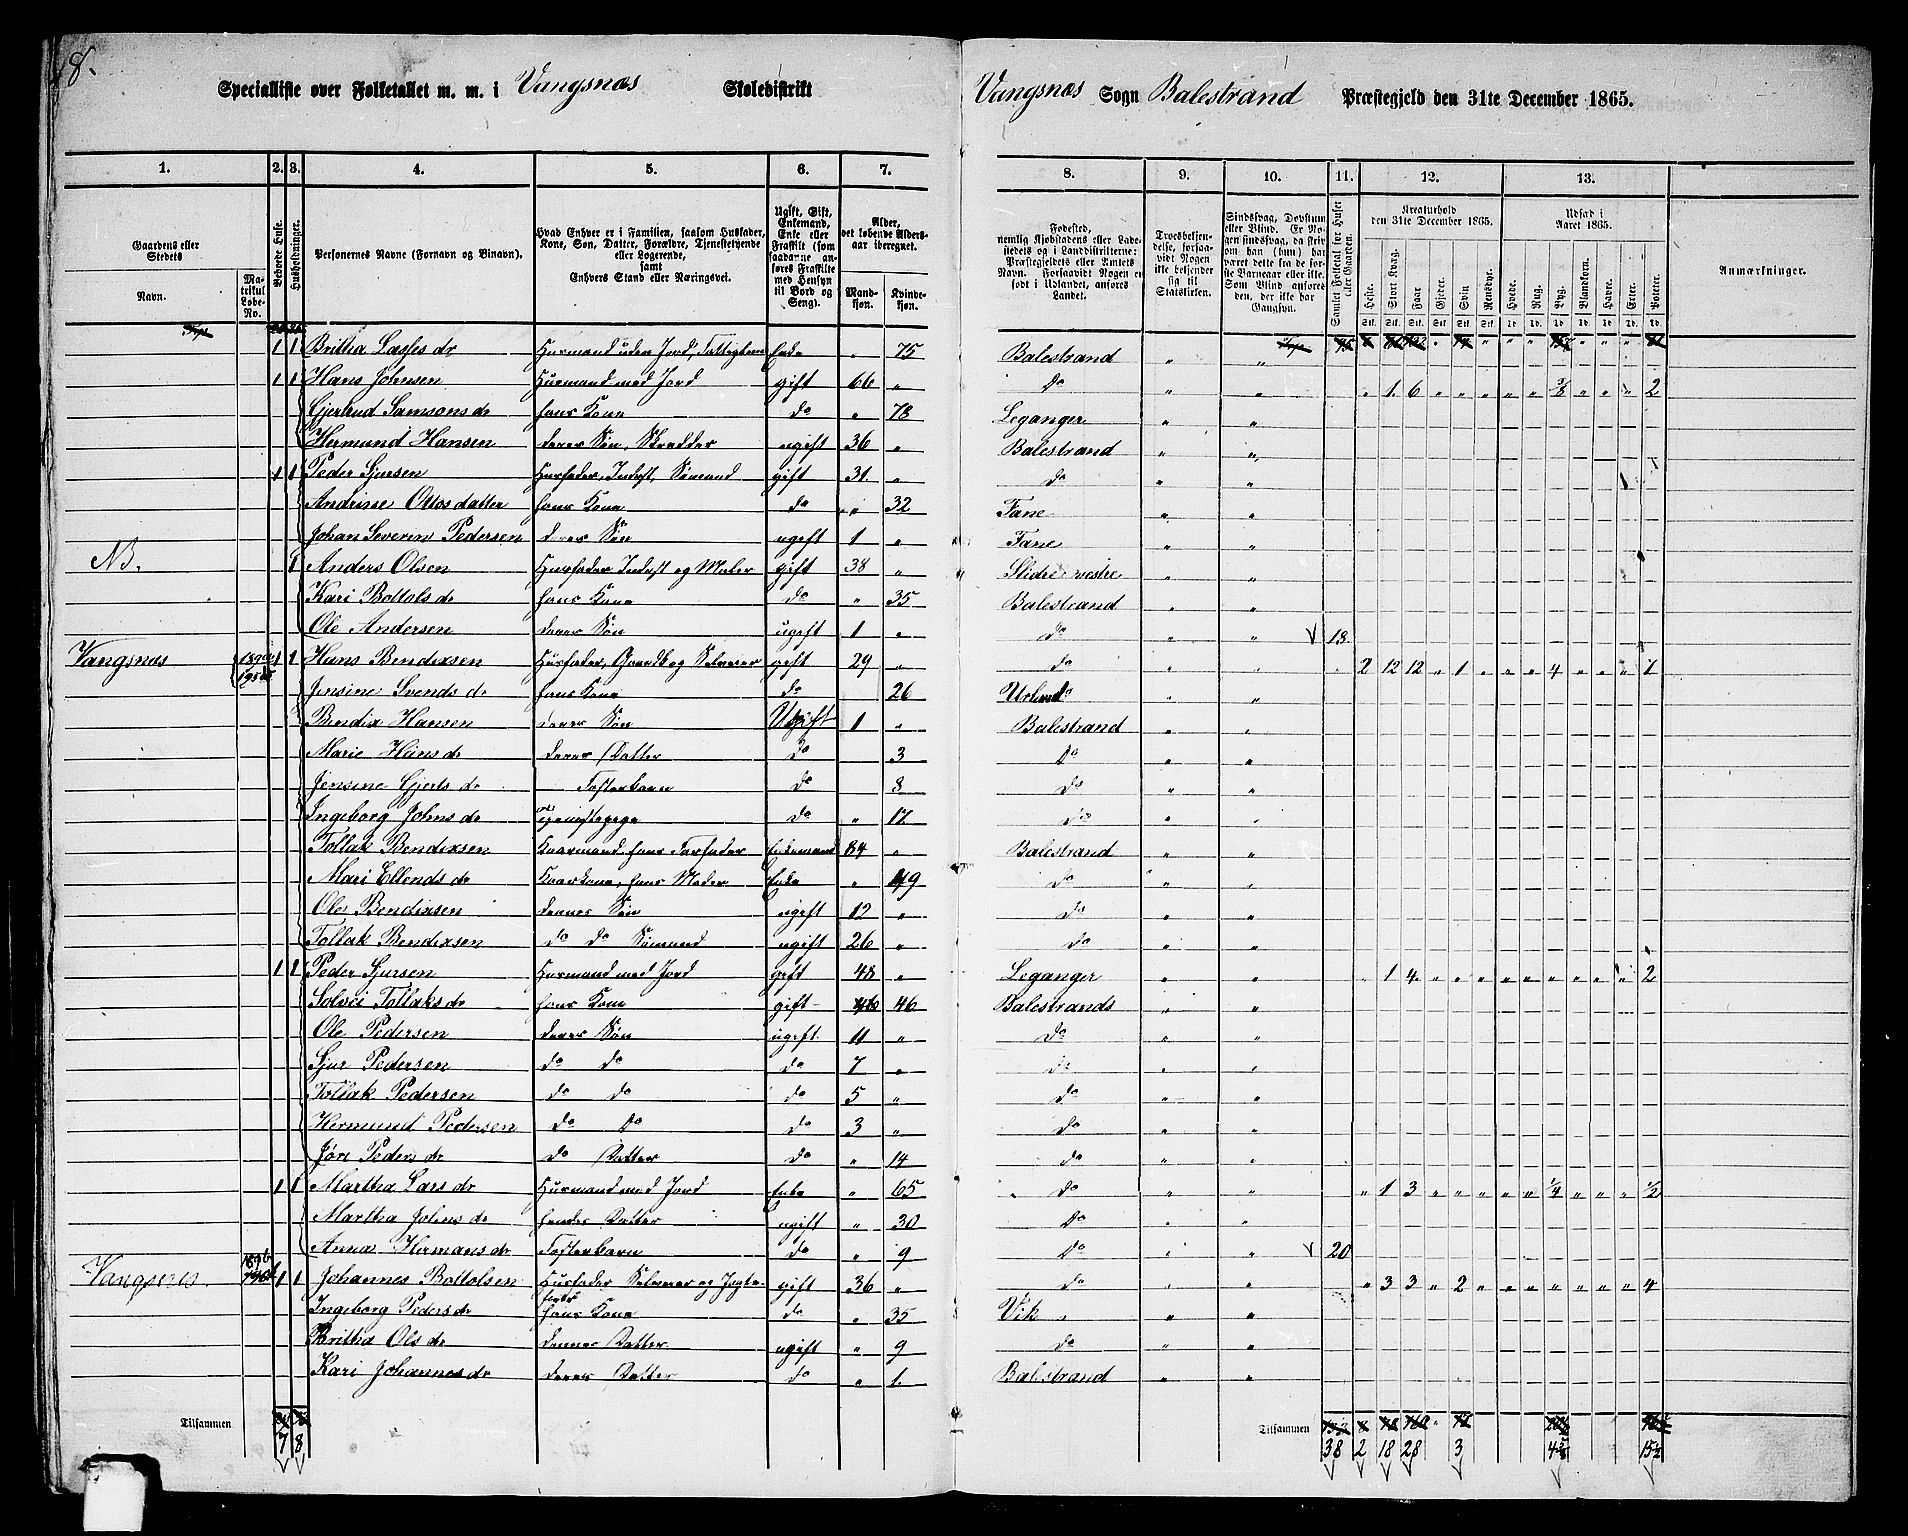 8.
Specialliste over Folketallet m. m. i Vangsnæs Skoledistrikt
Vangsnæs Sogn Balestrand Præstegjeld den 31te December 1865.
1. 2. 3. 4. 5. 6. 7. 8. 9. 10. 11. 12. 13.
Gaardens eller Stedets Navn. Matrikul Løbe-No. Beboede Huse. Husholdninger.
Personernes Navne (Fornavn og Binavn).
Hvad Enhver er i Familien, saasom Husfader, Kone, Søn, Datter, Forældre, Tjenestetyende eller Logerende, samt Enhvers Stand eller Næringsvei.
Ugift, Gift, Enkemand, Enke eller Fraskilt (som saadanne anføres Fraskilte med Hensyn til Bord og Seng).
Alder, det løbende Aldersaar iberegnet. Mandkjøn. Kvindekjøn.
Fødested, nemlig Kjøbstadens eller Ladestedets og i Landdistrikterne: Præstegjeldets eller Amtets Navn. Forsaavidt Nogen er født i Udlandet, anføres Landet.
Troesbekjendelse, forsaavidt Nogen ikke bekjender sig til Statskirken.
Sindssvag, Døvstum eller Blind. Er Nogen sindssvag, da skrives om han (hun) har været dette fra de første Barneaar eller ikke. Som Blind anføres den, der ikke har Gangsyn.
Samlet Folketal for Huset eller Gaarden.
Kreaturhold den 31te December 1865. Heste. Stort Kvæg. Faar. Gjeder. Svin. Rensdyr.
Udsæd i Aaret 1865. Hvede. Rug. Byg. Blandkorn. Havre. Erter. Poteter.
Anmærkninger.
1 1 Britha Lasses dr Husmand uden Jord, Enke " 75 Balestrand " "
1 1 Hans Johnsen Husmand med Jord gift 66 " Do " " " 1 6 " " " " " 3/8 " " " 2
Gjertrud Samsons dr hans Kone do " 78 Leganger " "
Hermund Hansen deres Søn, Skrædder ugift 36 " Balestrand " "
1 1 Peder Sjursen Husfader, Inderst, Sømand gift 31 " do " "
Andrine Ottosdatter hans Kone do " 32 Fane " "
Johan Severin Pedersen deres Søn ugift 1 " Fane " "
NB. 1 Anders Olsen Husfader Inderst og Maler gift 38 " Slidre vestre " "
Kari Bottols dr hans Kone do " 35 Balestrand " "
Ole Andersen deres Søn ugift 1 " do " " 18
Vangsnæs 1 1 Hans Bendixsen Husfader, Gaardb og Selveier gift 29 " do " " " 2 12 12 " 1 " " " 4 " " " 1
Jensine Svends dr hans Kone do 26 Urland " "
Bendix Hansen deres Søn Ugift 1 " Balestrand " "
Marie Hans dr deres Datter do 3 Do " "
Jensine Gjerts dr Fosterbarn do 8 do " "
Ingeborg Johns dr Tjenestepige do " 17 do "
Tollak Bendixsen Kaarmand, hans Farfader Enkemand 84 " Balestrand " "
Mari Ellends dr Kaarkone, hans Moder Enke " 49 do " "
Ole Bendixsen dennes Søn ugift 12 " do " "
Tollak Bendixsen do do Sømand ugift 26 " do " "
1 1 Peder Sjursen Husmand med Jord gift 48 " Leganger " " " 1 4 " " " " " " " " " 2
Solvei Tollaks dr hans Kone gift 46 Balestrands " "
Ole Pedersen deres Søn ugift 11 " do " "
Sjur Pedersen do do do 7 " do " "
Tollak Pedersen do do do 5 " do " "
Hermund Pedersen do do do 3 " do " "
Jøri Peders dr do Datter do " 14 do " "
1 1 Martha Lars dr Husmand med Jord Enke " 65 do " " " 1 3 " " " " " 1/4 " " " 1/2
Martha Johns dr hendes Datter ugift " 30 do " "
Anna Hermans dr Fosterbarn do " 9 do " " 20
Vangsnes 189b 1 1 Johannes Bottolsen Husfader Selveier og Jagtefører gift 36 " do " " " 3 3 " 2 " " " " " " " 4
Ingeborg Peders dr hans Kone do " 35 Vik " "
Britha Ols dr dennes Datter ugift " 9 do " "
Kari Johannes dr deres Datter do " 1. Balestrand " "
Tilsammen 7 8 Tilsammen 38 2 18 28 3